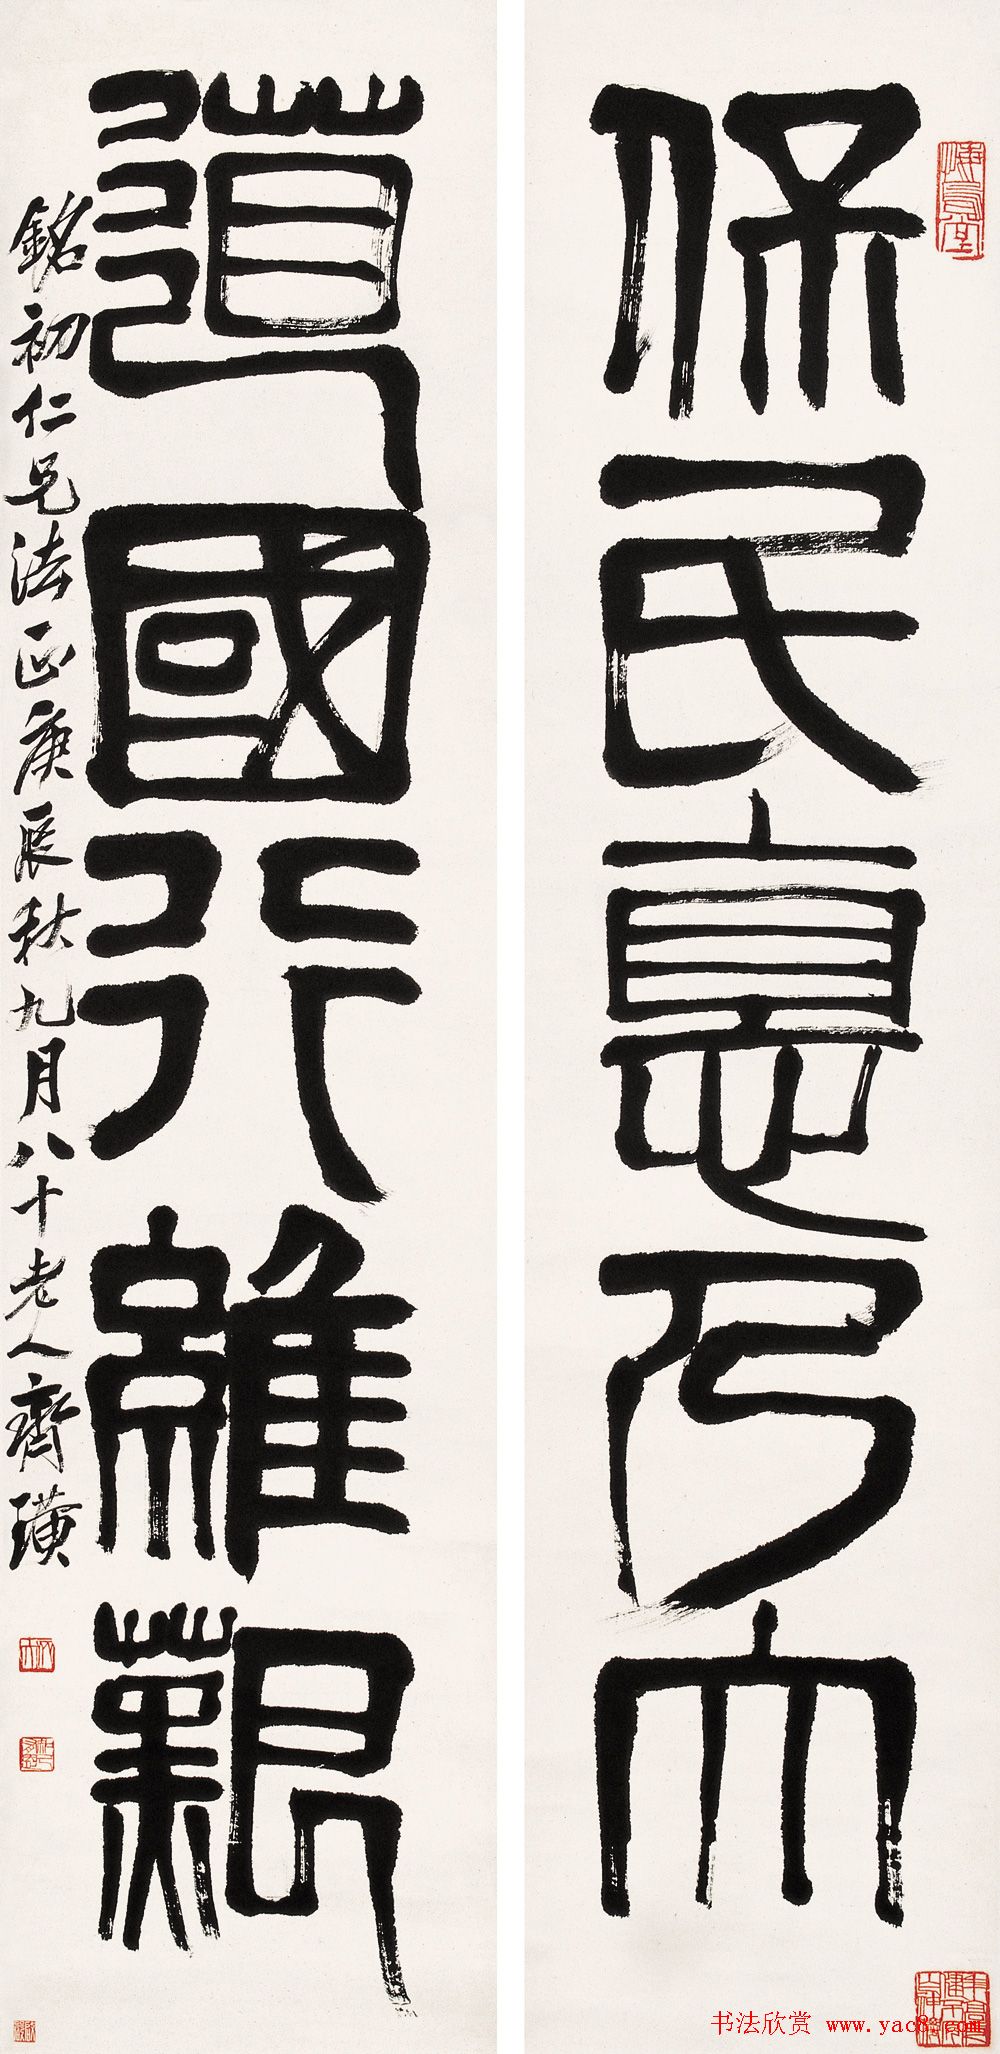 保民悳乃大
道國行維艱
銘初仁兄法正庚辰秋九月八十老人齊璜
悔烏堂
书法欣赏 www.yac8.com